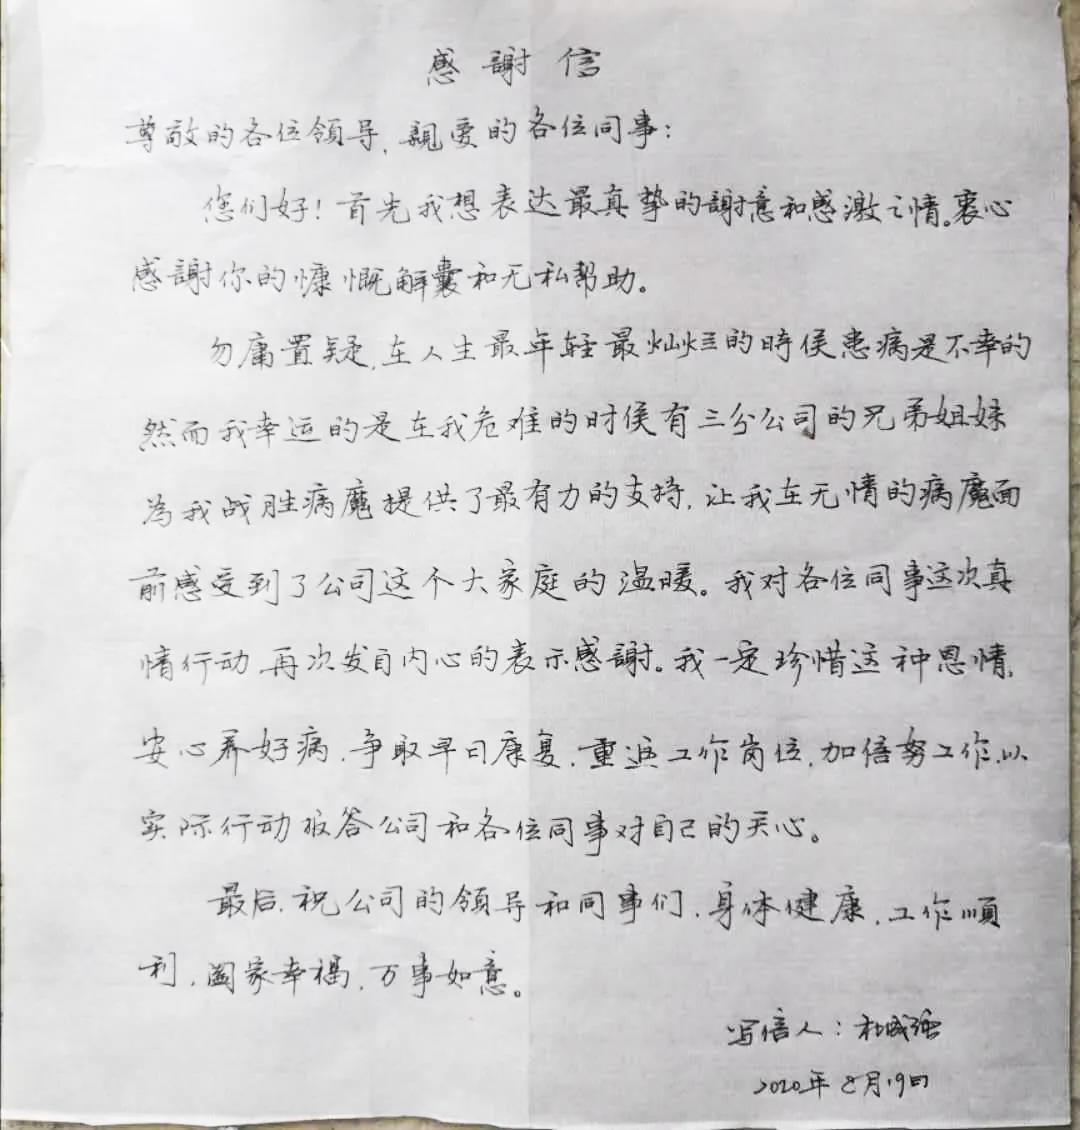 感謝信
尊敬的各位領导,親爱的各位同事:
您们好!首先我想表达最真挚的謝意和感激之情。衷心
感謝你的慷慨解囊和无私帮助。
勿庸置疑,在人生最年轻最灿烂的時侯患病是不幸的
然而我幸运的是在我危难的时侯有三分公司的兄弟姐妹
為我战胜病魔提供了最有力的支持,让我在无情的病魔面
前感受到了公司这个大家庭的温暖。我对各位同事这次真
情行动,再次发自内心的表示感謝。我一定珍惜这种恩情,
安心养好病,争取早日康复,重返工作岗位,加倍努工作,以
实际行动报答公司和各位同事对自己的关心。
最后,祝公司的領导和同事们,身体健康,工作順
利,阖家幸福,万事如意。
写信人:杜成强
2020年8月19日